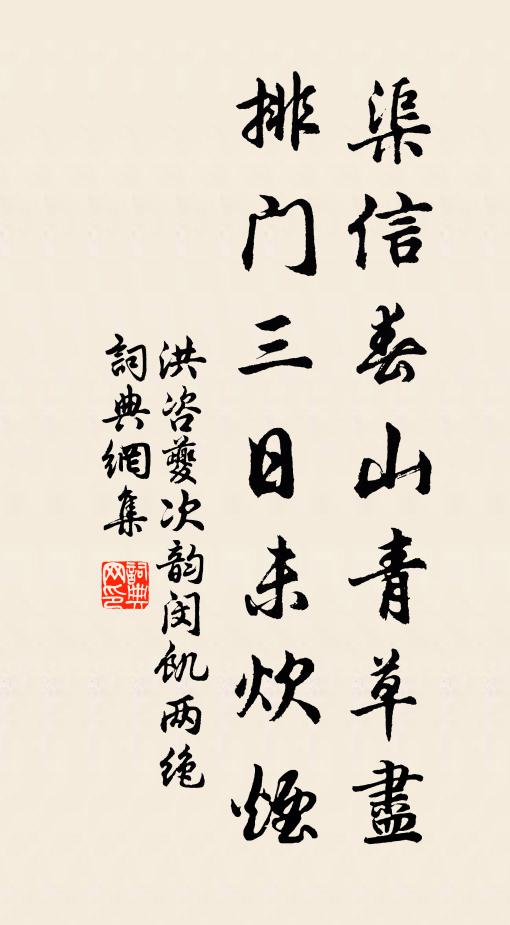 渠信春山青草盡
排门三日未炊煙
洪咨夔次韵闵飢两绝
詞典網集
詞典网印